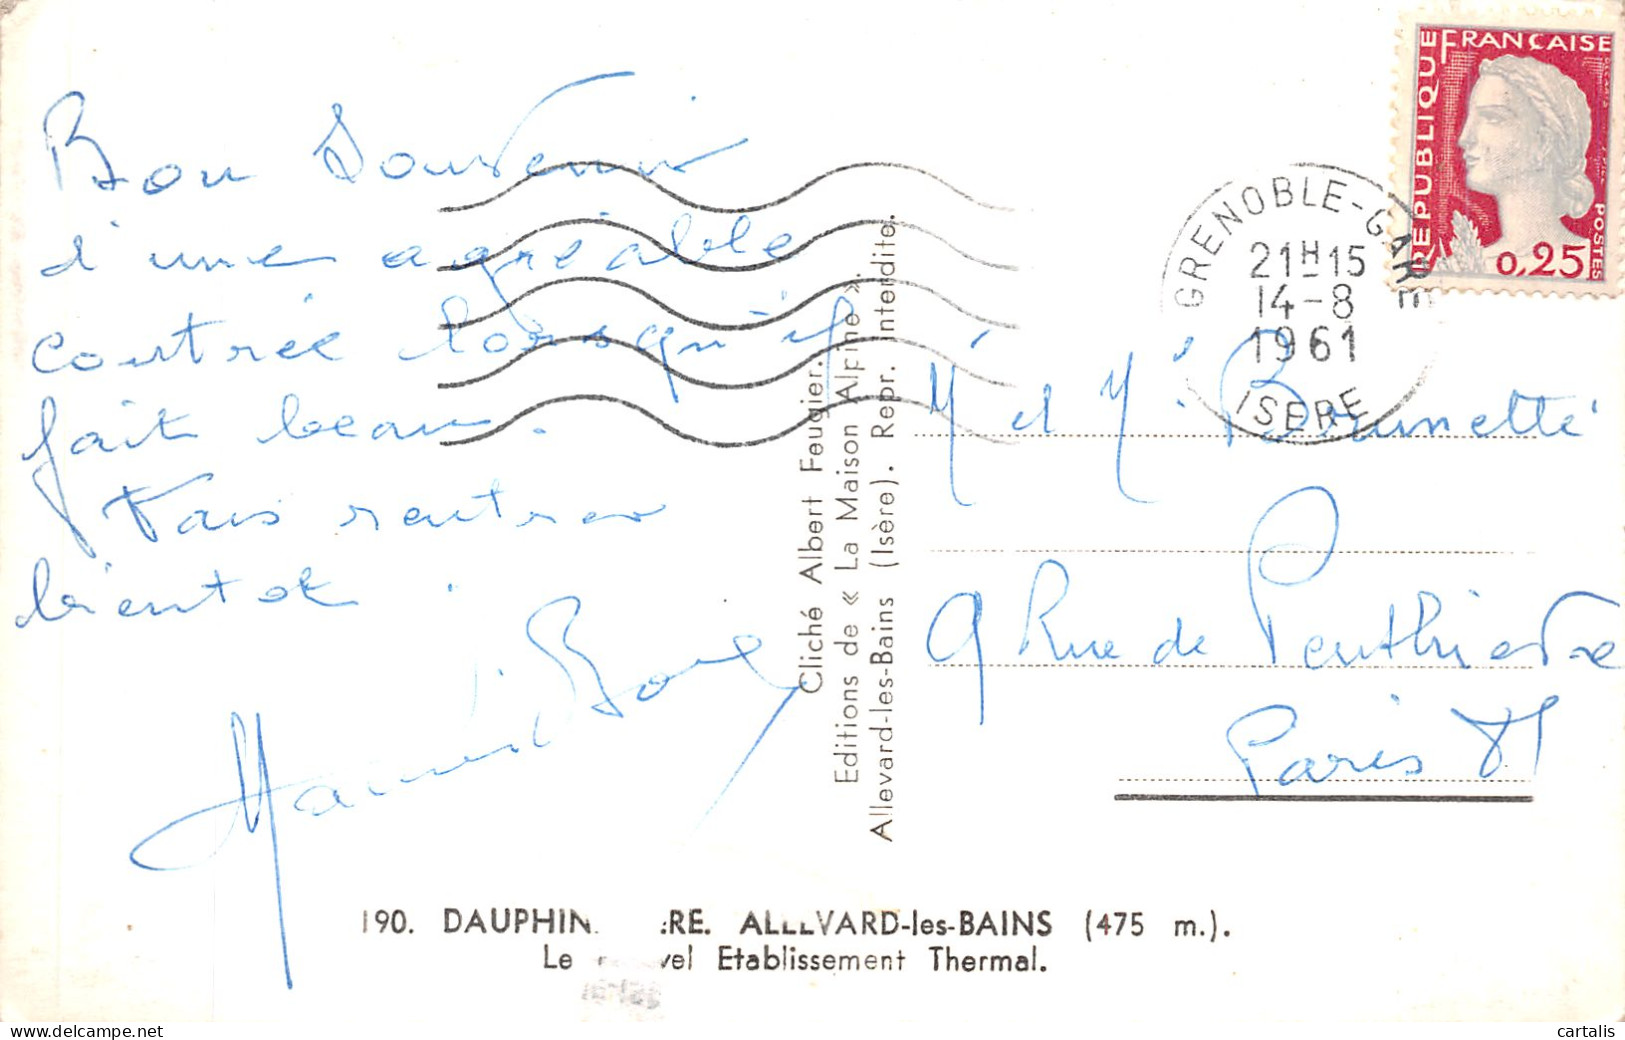 Bon Souvenir
d'une agréable
contrée lorsqu'il
fait beau.
Vais rentrer
bientot.
REPUBLIQUE FRANÇAISE
POSTES
0,25
GRENOBLE-GARE
21H15
14-8
1961
ISERE
M et M Brunetti
9 Rue de Penthièvre
Paris
Cliché Albert Feugier.
Editions de « La Maison Alpine »
Allevard-les-Bains (Isère). Repr. interdite.
190. DAUPHIN RE. ALLEVARD-les-BAINS (475 m.).
Le vel Etablissement Thermal.
cartalis